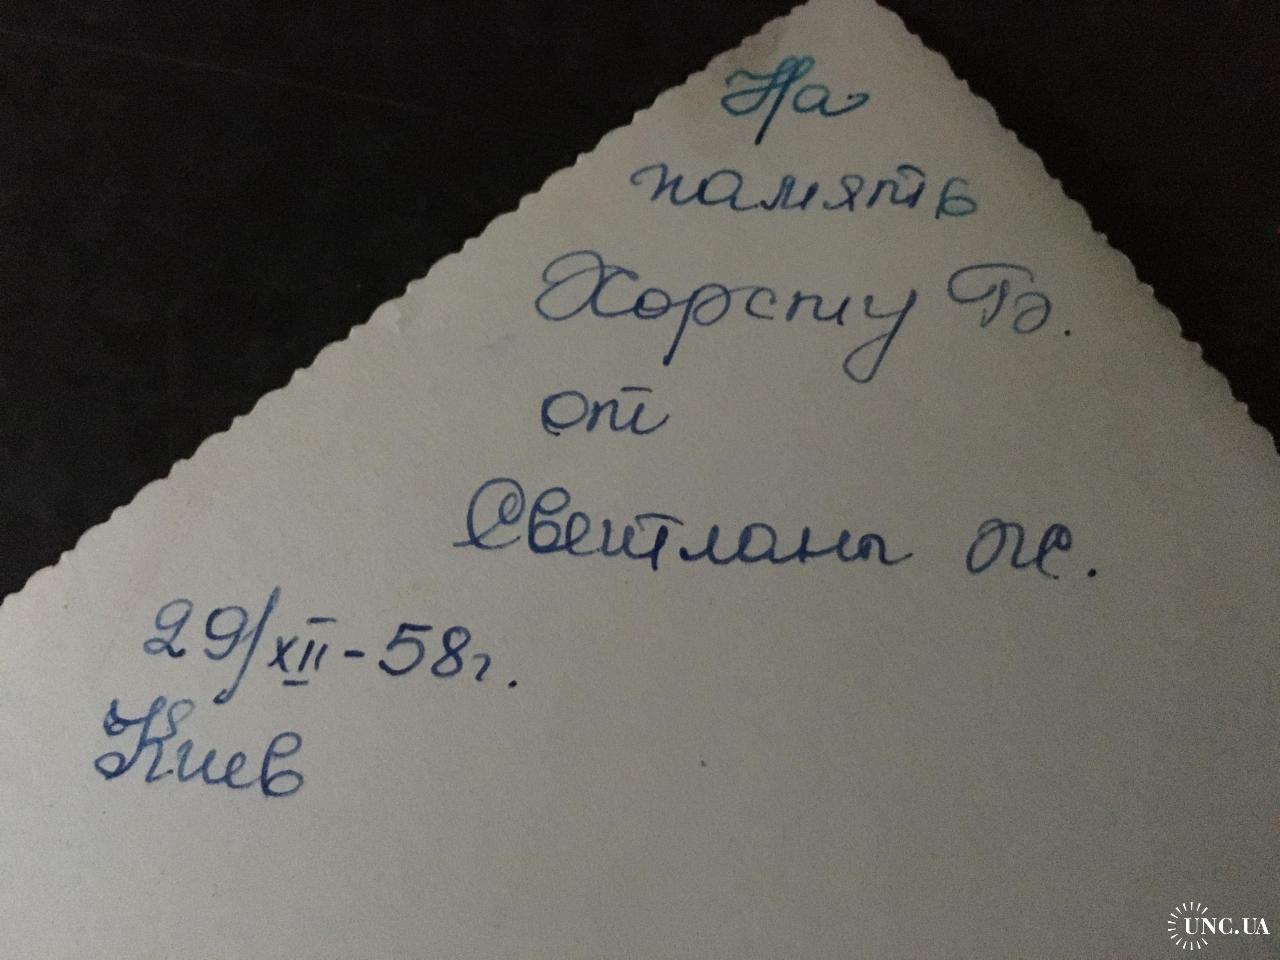 На
память
Хорсту Б.
от
Светланы Ж.
29/XII-58г.
Киев
UNC.UA